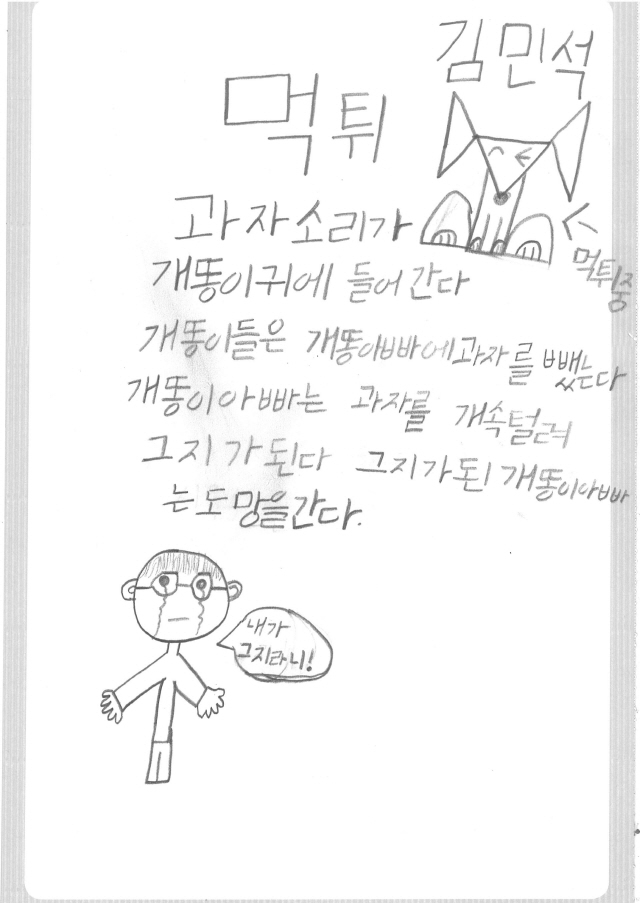 김민석
먹튀
과자소리가
개똥이귀에 들어간다
먹튀중
개똥이들은 개똥아빠에과자를 뺐는다
개똥이아빠는 과자를 개속털려
그지가된다 그지가된 개똥이아빠
는도망을간다.
내가
그지라니!